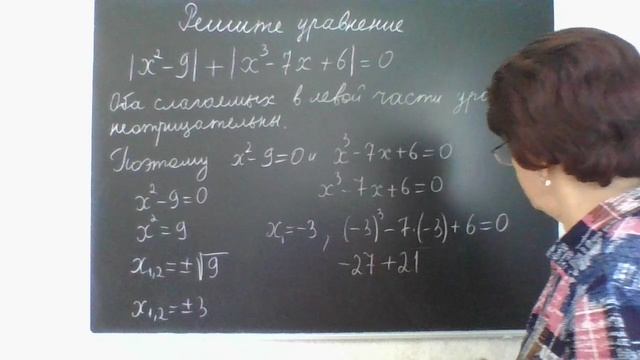 Решите уравнение
|x²-9|+|x³-7x+6|=0
Оба слагаемых в левой части
неотрицательны.
Поэтому x²-9=0 и x³-7x+6=0
x²-9=0
x³-7x+6=0
x²=9
x₁=-3, (-3)³-7·(-3)+6=0
x₁,₂=±√9
-27+21
x₁,₂=±3